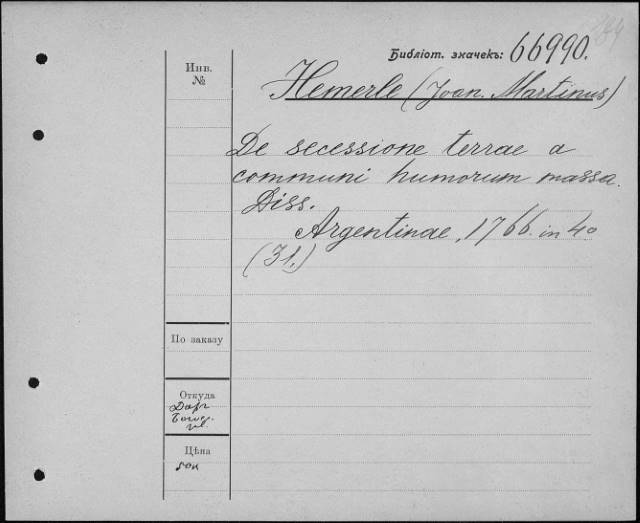 Библіот. значекъ: 66990.
Инв.
№
Hemerle (Joan. Martinus)
De secessione terrae a
communi humorum massa.
Diss.
Argentinae, 1766. in 4o
(31.)
По заказу
Откуда
Дар
Цѣна
50к